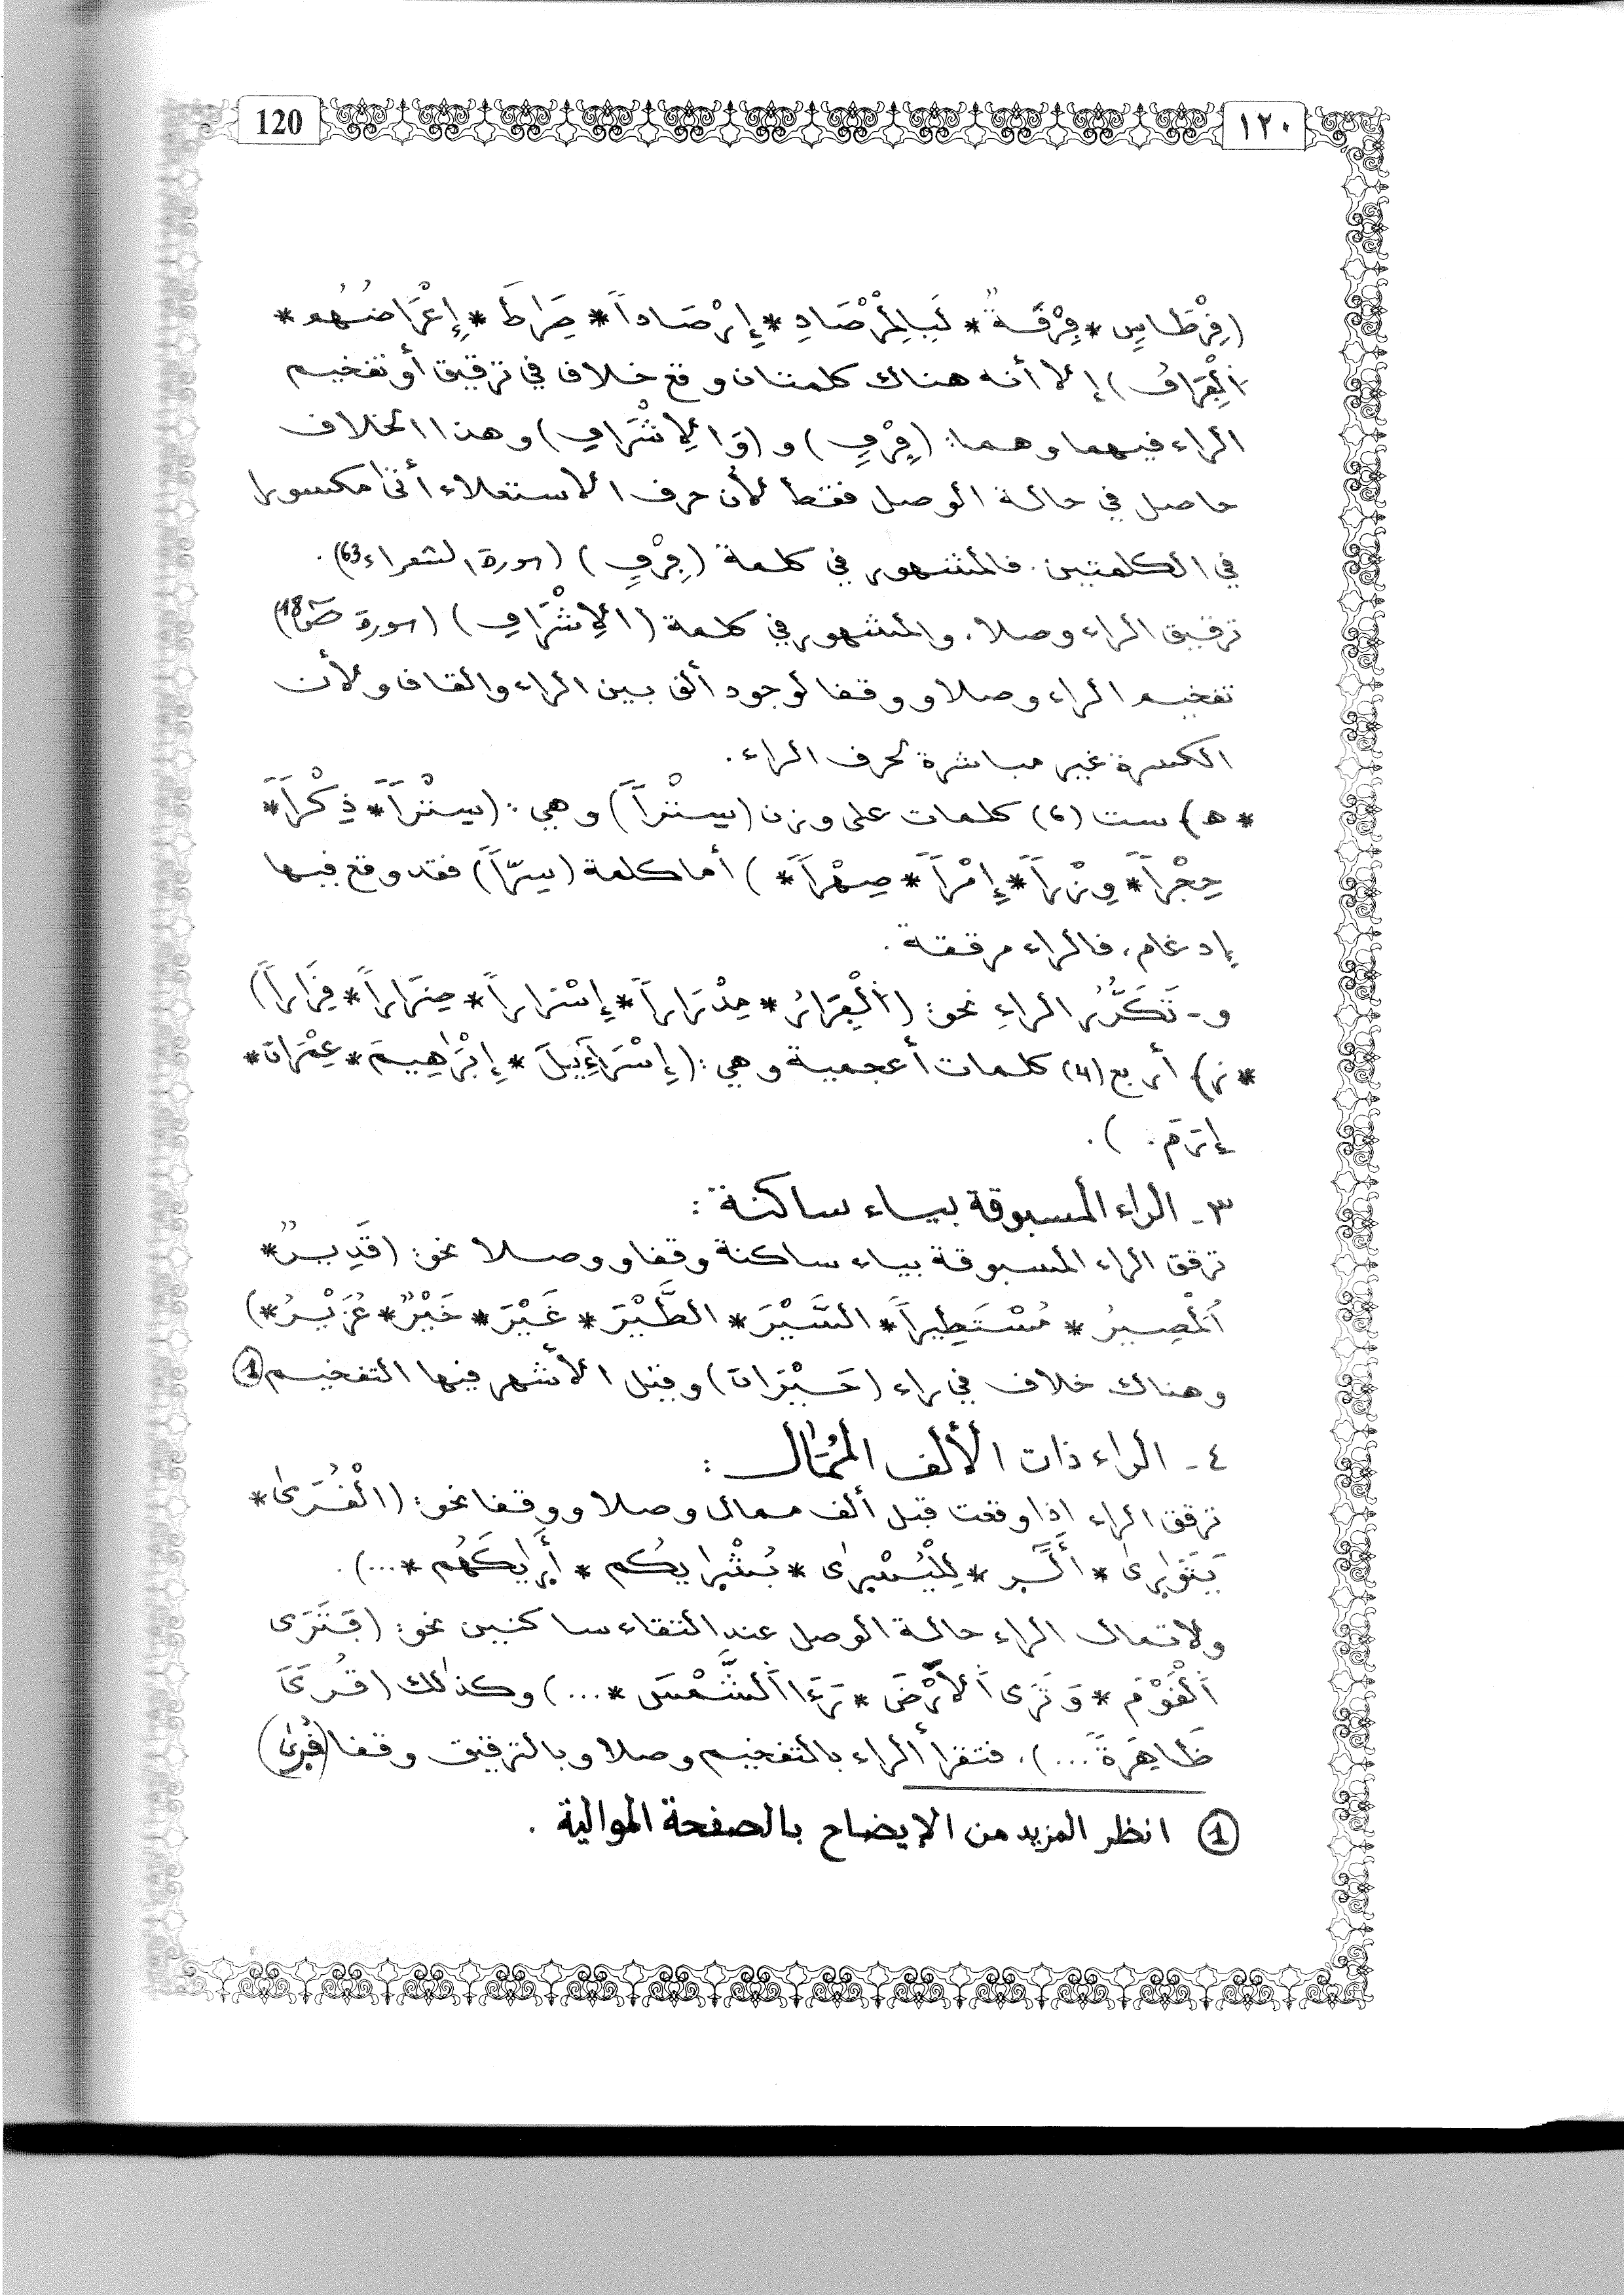 120
١٢٠
(قِرْطَاسٍ * فِرْقَةٌ * لَبِالْمِرْصَادِ * إِرْصَاداً * صِرَاطَ * إِعْرَاضُهُم *
اَلْفِرَاقُ) إلا أنه هناك كلمتان وقع خلاف في ترقيق أو تفخيم
الراء فيهما وهما: (فِرْقٍ) و (وَالْإِشْرَاقِ) وهذا الخلاف
حاصل في حالة الوصل فقط لأن حرف الاستعلاء أتى مكسورا
في الكلمتين. فالمشهور في كلمة (فِرْقٍ) (سورة الشعراء 63).
ترقيق الراء وصلا. والمشهور في كلمة (الإِشْرَاقِ) (سورة صٓ 18)
تفخيم الراء وصلا ووقفا لوجود ألف بين الراء والقاف ولأن
الكسرة غير مباشرة لحرف الراء.
* ه) ست (6) كلمات على وزن (سِتْراً) وهي: (سِتْراً * ذِكْراً *
حِجْراً * وِزْراً * إِمْراً * صِهْراً *) أما كلمة (سِرّاً) فقد وقع فيها
إدغام، فالراء مرققة.
و- تَكَرُّرُ الراءِ نحو: (اَلْفِرَارُ * مِدْرَاراً * إِسْرَاراً * ضِرَاراً * فِرَاراً)
* ز) أربع (4) كلمات أعجمية وهي: (إِسْرَآءِيلَ * إِبْرَاهِيمَ * عِمْرَانَ *
إِرَمَ).
٣- الراء المسبوقة بياء ساكنة:
ترقق الراء المسبوقة بياء ساكنة وقفا ووصلا نحو: (قَدِيرٌ *
اَلْمَصِيرُ * مُسْتَطِيراً * السَّيْرَ * الطَّيْرَ * غَيْرَ * خَيْرٌ * عُزَيْرُ *)
وهناك خلاف في راء (حَيْرَانَ) وقيل الأشهر فيها التفخيم ①
٤- الراء ذات الألف المُمَال:
ترقق الراء إذا وقعت قبل ألف ممال وصلا ووقفا نحو: (الْقُرَىٰ *
يَتَوَٰرِىٰ * أَلَٓر * لِلْيُسْرِىٰ * بُشْرِايكُم * أَرِايكَهُم * ...).
ولا تمال الراء حالة الوصل عند التقاء ساكنين نحو: (فَتَرَى
اَلْقَوْمَ * وَتَرَى اَلْأَرْضَ * رَءَا اَلشَّمْسَ * ...) وكذلك (قُرىً
ظَاهِرَةً ...). فتقرأ الراء بالتفخيم وصلا وبالترقيق وقفا (قُرىٰ)
① انظر المزيد من الإيضاح بالصفحة الموالية.